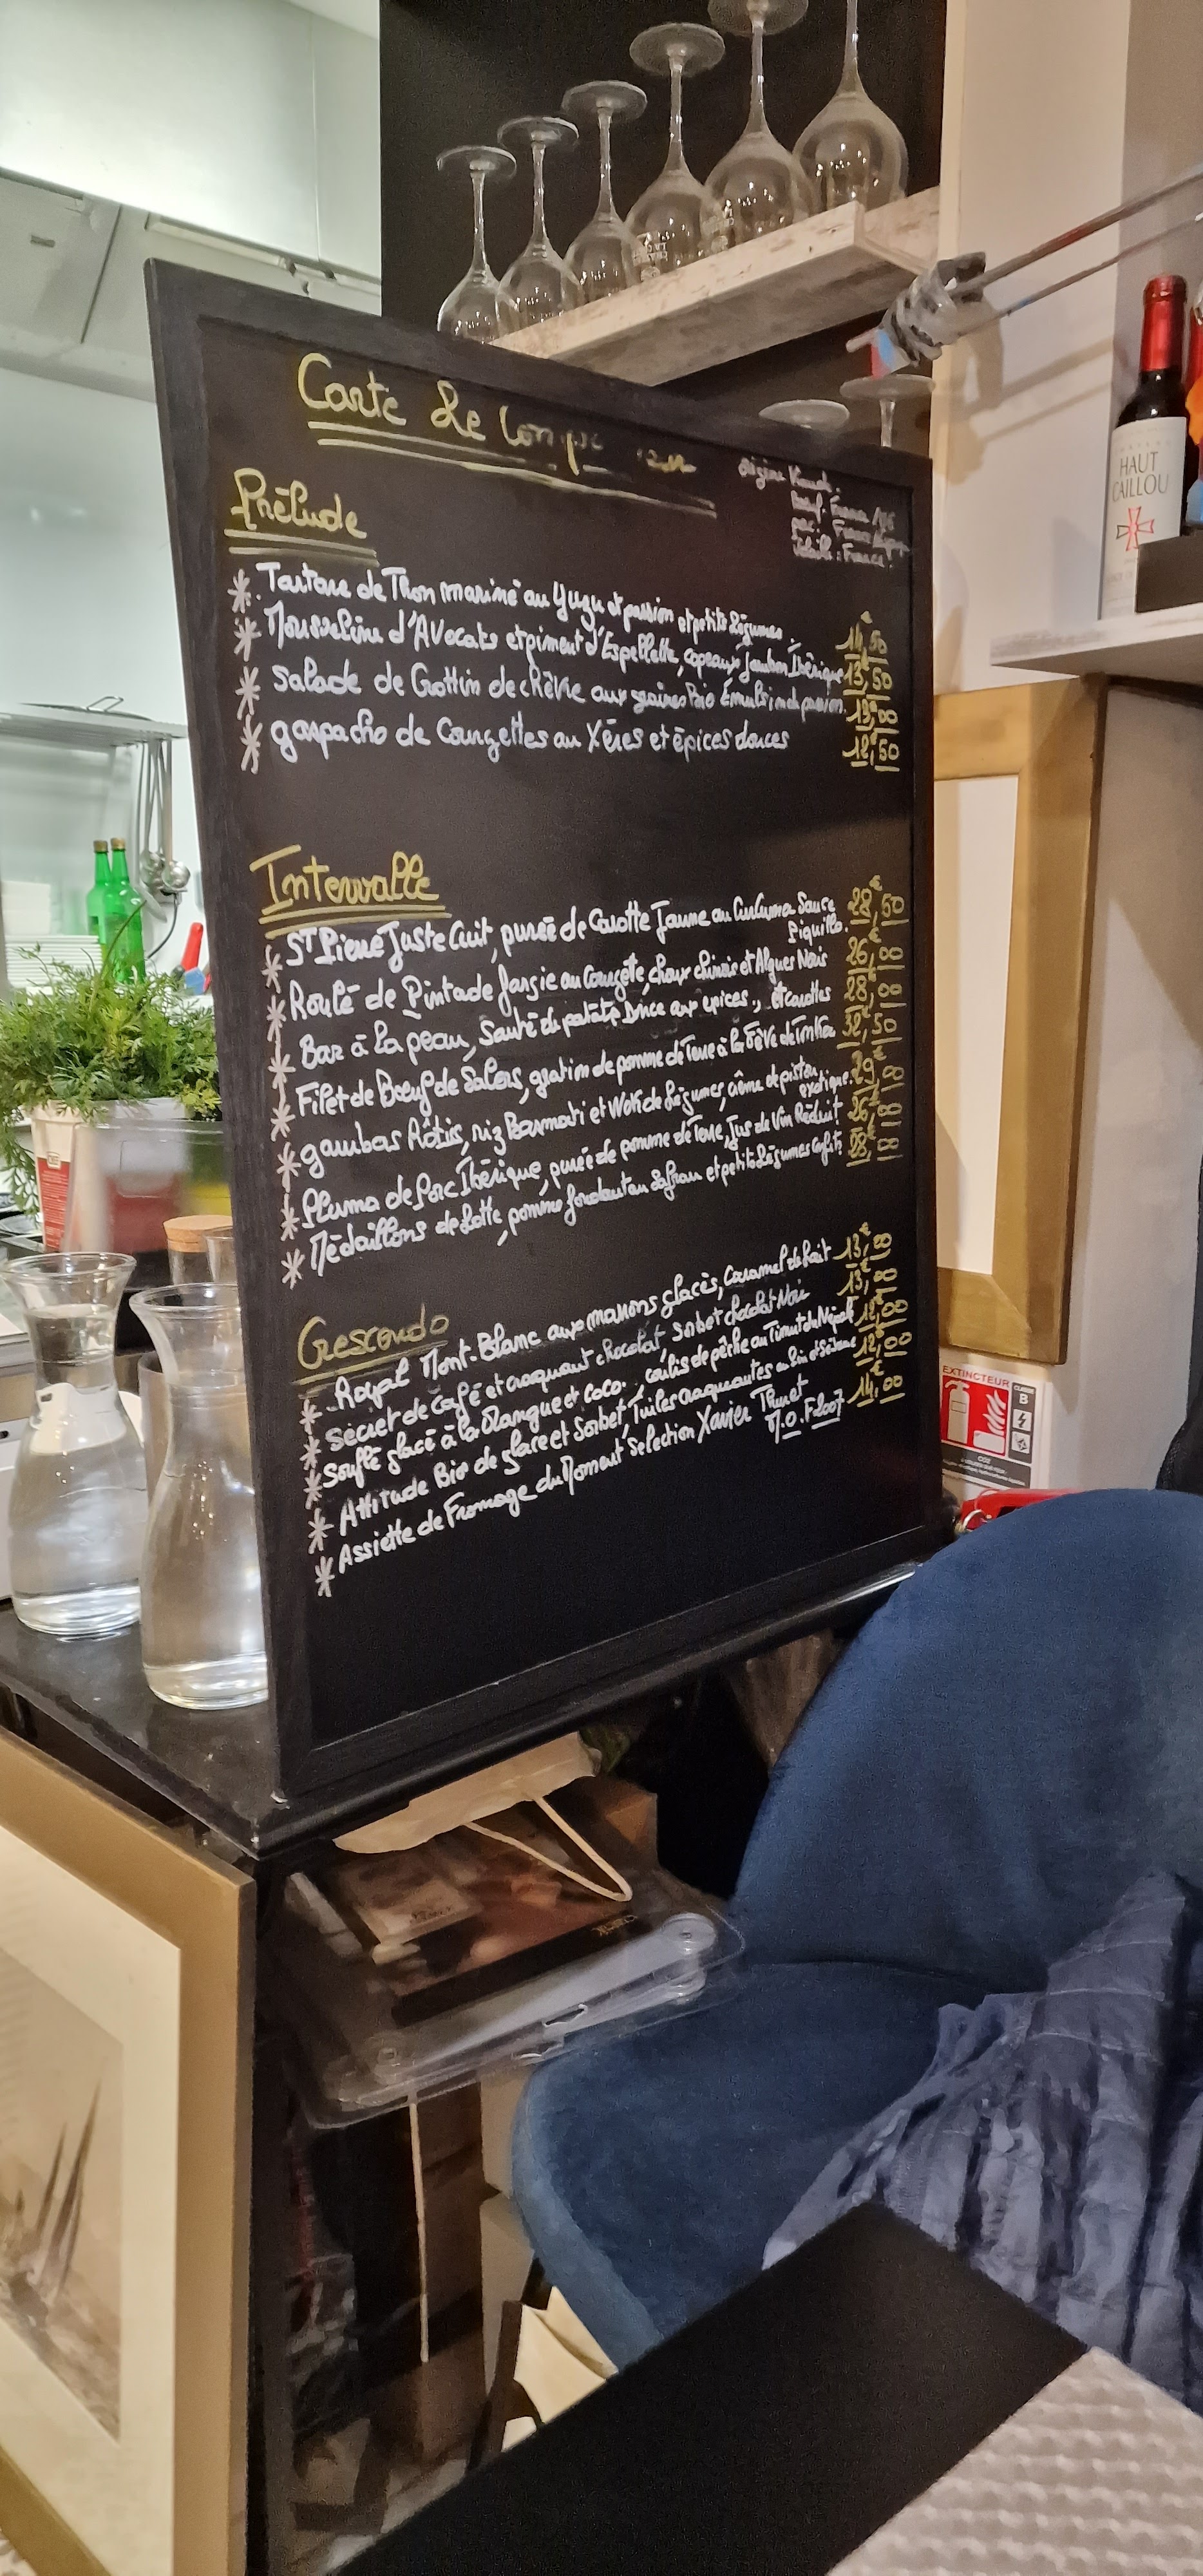 Carte de
Prélude
origine Viande:
Boeuf: France
porc: France
Volaille: France.
* Tartare de Thon mariné au Yuzu et passion et petits légumes. 14€,50
* Mousseline d'Avocats et piment d'Espellette, copeaux Jambon Ibérique 13€,50
* Salade de Crottin de chèvre aux graines Bio Emulsion de passion. 13€,00
* gaspacho de Courgettes au Xérès et épices douces 12€,50
Intervalle
* ST Pierre Juste Cuit, purée de Carotte Jaune au Curcuma Sauce 28€,50
Piquillo.
* Roulé de Pintade farçie au Courgette, choux chinois et Algues Noris 26€,00
* Bar à la peau, Sauté de patate Douce aux épices, et carottes 28€,00
* Filet de Boeuf de Salers, gratin de pomme de Terre à la Fève de Tonka 32€,50
* gambas Rôtis, riz Basmati et Wok de légumes, crème de pistou 29€
exotique.
* Pluma de Porc Ibérique, purée de pomme de Terre, Jus de Vin Réduit 26€,00
* Médaillons de Lotte, pomme fondant au safran et petits légumes Confits 28€
Crescendo
* Royal Mont-Blanc aux marrons glacés, Caramel de lait 13€,00
* Secret de Café et croquant chocolat, sorbet chocolat Noir 13€,00
* Soufflé glacé à la Mangue et Coco. coulis de pêche au Timut du Népal 12€,00
* Attitude Bio de glace et Sorbet, Tuiles craquantes au lin et sésame 12€,00
* Assiette de Fromage du Moment Selection Xavier Thuret 14€,00
M.O.F 2007
HAUT
CAILLOU
EXTINCTEUR
CLASSE
B
CO2